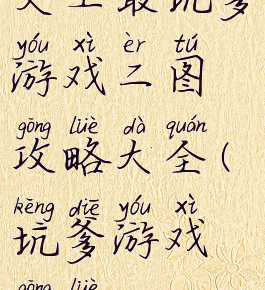 史上最坑爹
yóu xì èr tú
游戏二图
gōng lüè dà quán
攻略大全(
kēng diē yóu xì
坑爹游戏
gōng lüè